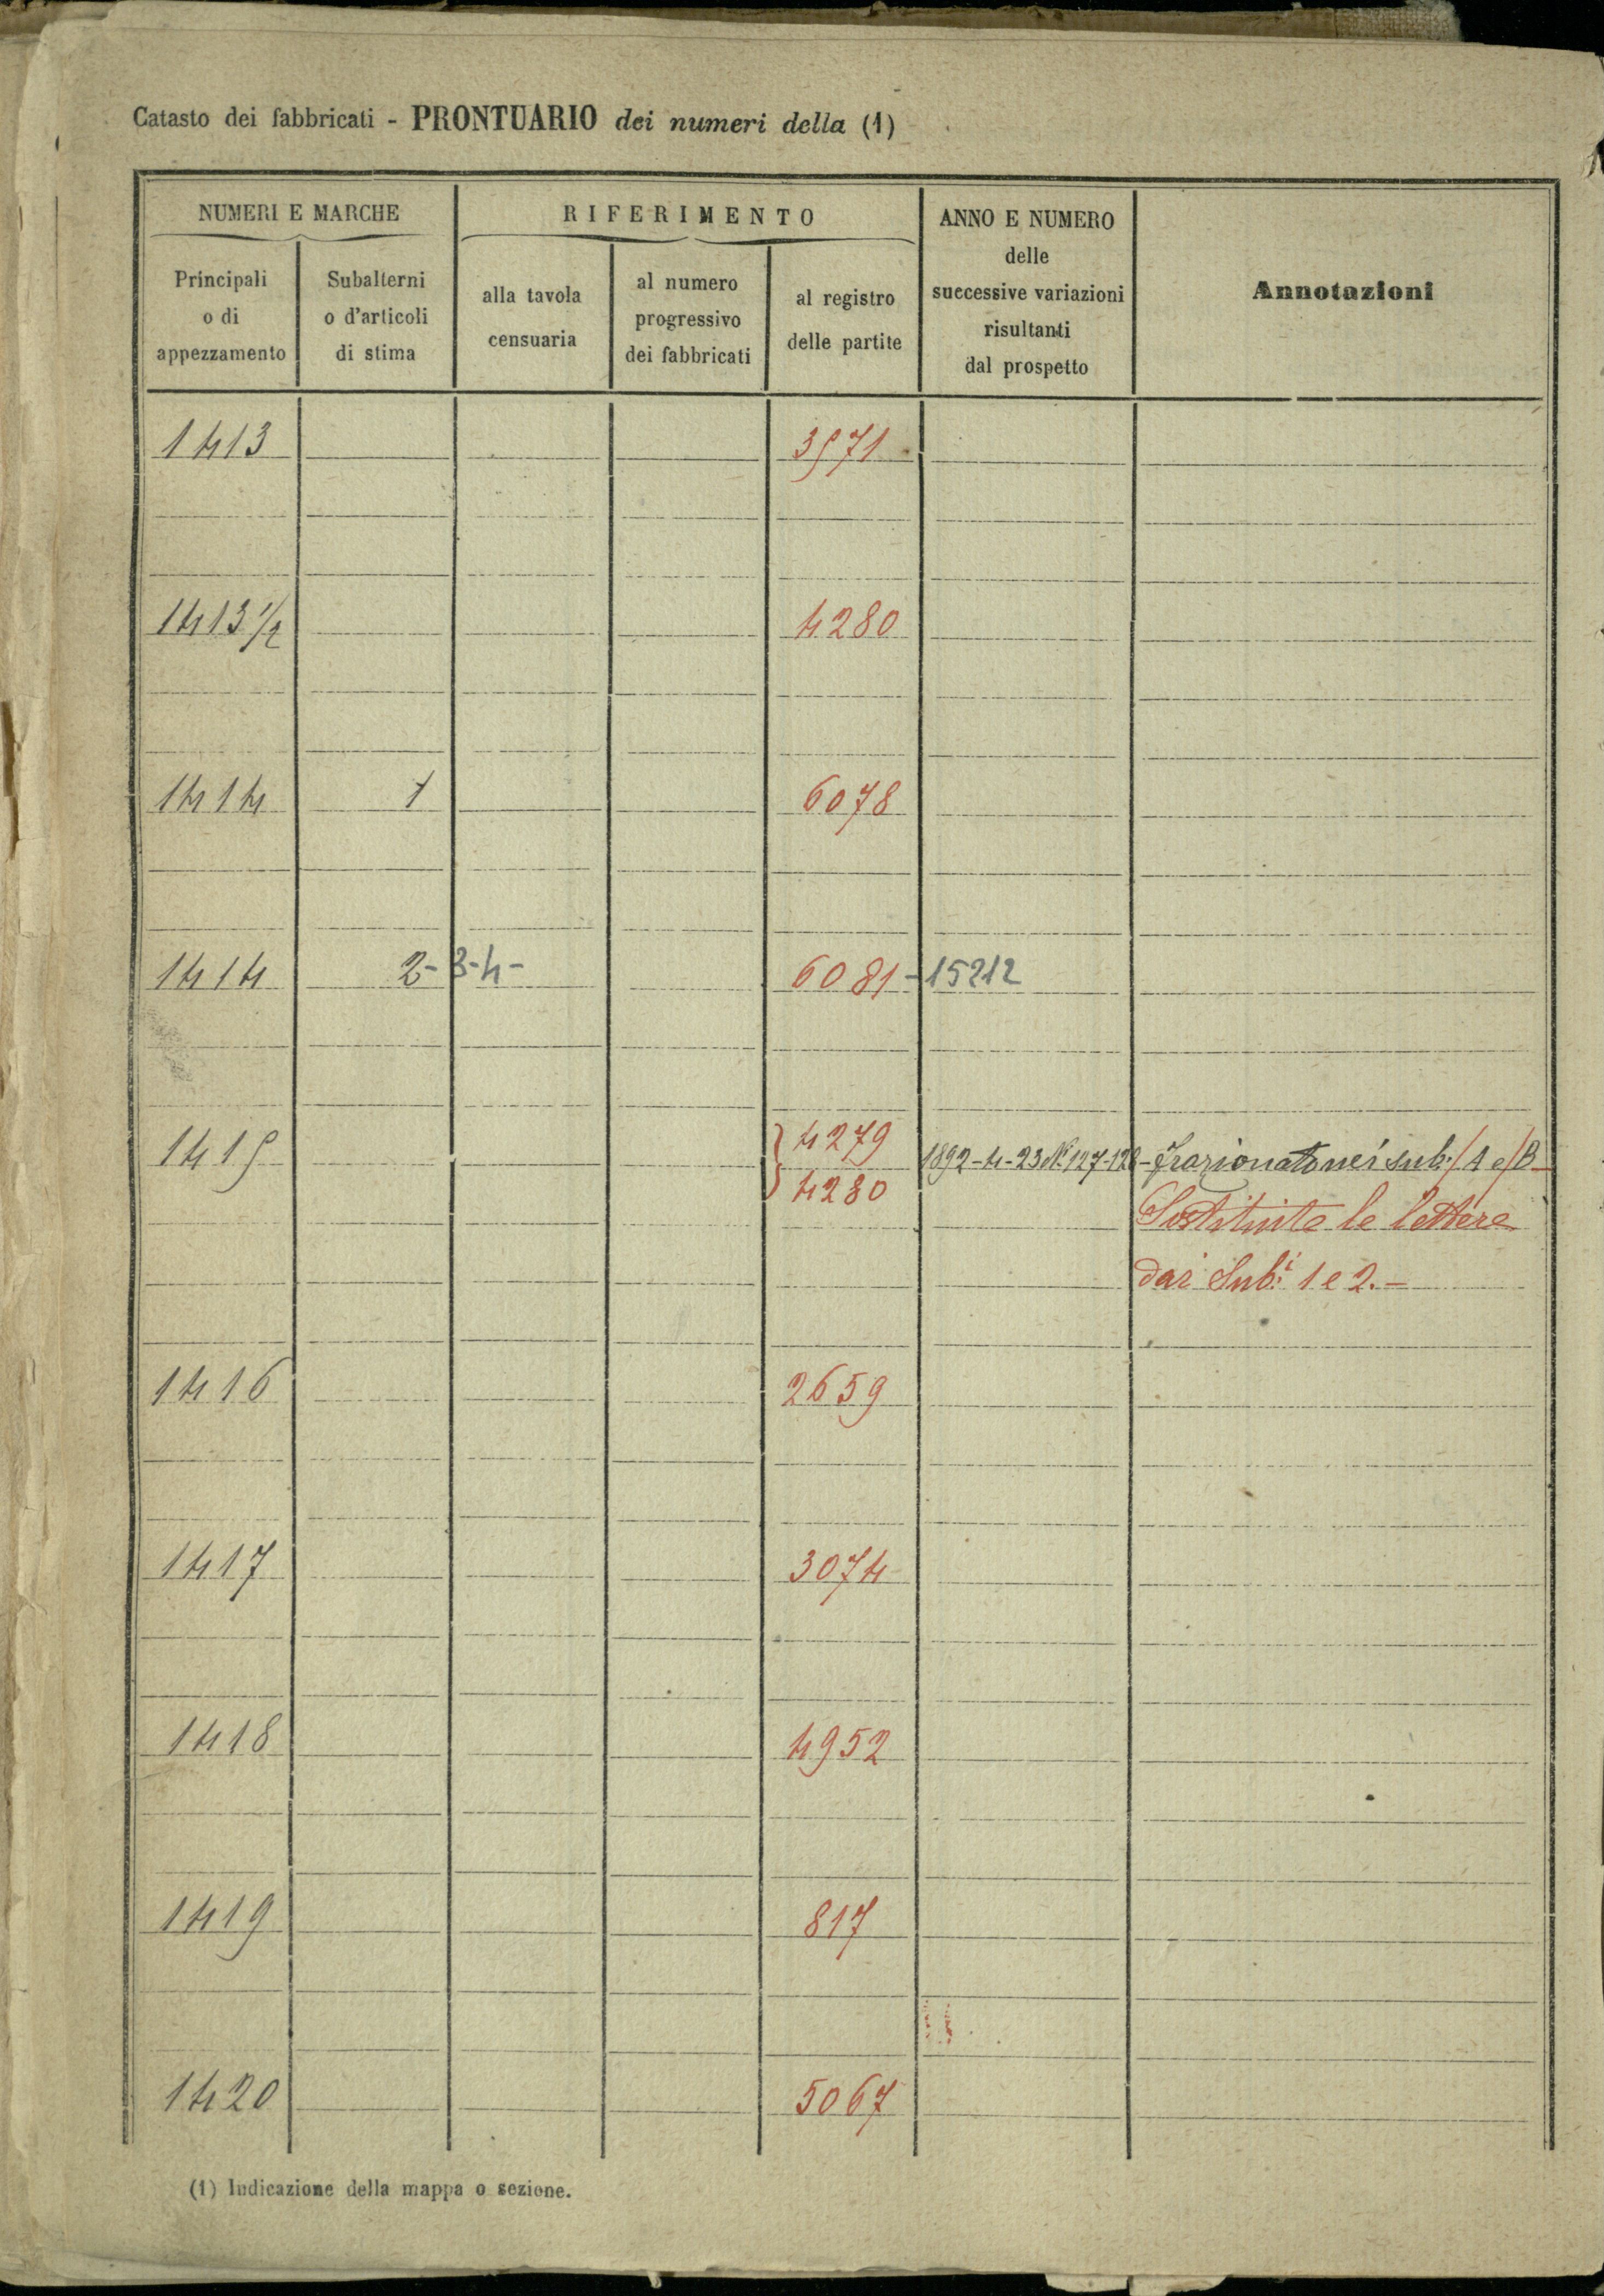 Catasto dei fabbricati - PRONTUARIO dei numeri della (1)
NUMERI E MARCHE
RIFERIMENTO
ANNO E NUMERO
delle
successive variazioni
risultanti
dal prospetto
Annotazioni
Principali
o di
appezzamento
Subalterni
o d'articoli
di stima
alla tavola
censuaria
al numero
progressivo
dei fabbricati
al registro
delle partite
1413 3571
1413 1/2 4280
1414 1 6078
1414 2-3-4- 6081-15212
1415 4279 1892-4-23 N. 127-128- frazionato nei sub. A e B
4280 Sostituite le lettere
dai Sub.i 1 e 2.-
1416 2659
1417 3074
1418 4952
1419 817
1420 5067
(1) Indicazione della mappa o sezione.